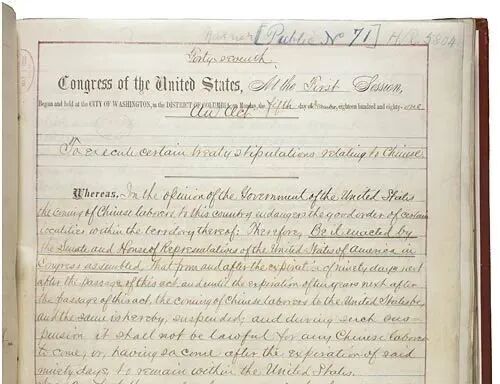 [Public No 71] H.R. 5804
Forty seventh
Congress of the United States, At the First Session,
Begun and held at the CITY OF WASHINGTON, in the DISTRICT OF COLUMBIA, on Monday, the fifth day of December, eighteen hundred and eighty-one
An Act
To execute certain treaty stipulations relating to Chinese.
Whereas, In the opinion of the Government of the United States
the coming of Chinese laborers to this country endangers the good order of certain
localities within the territory thereof: Therefore, Be it enacted by
the Senate and House of Representatives of the United States of America in
Congress assembled, That from and after the expiration of ninety days next
after the passage of this act, and until the expiration of ten years next after
the passage of this act, the coming of Chinese laborers to the United States be,
and the same is hereby, suspended; and during such sus-
pension it shall not be lawful for any Chinese laborer
to come, or, having so come after the expiration of said
ninety days, to remain within the United States.